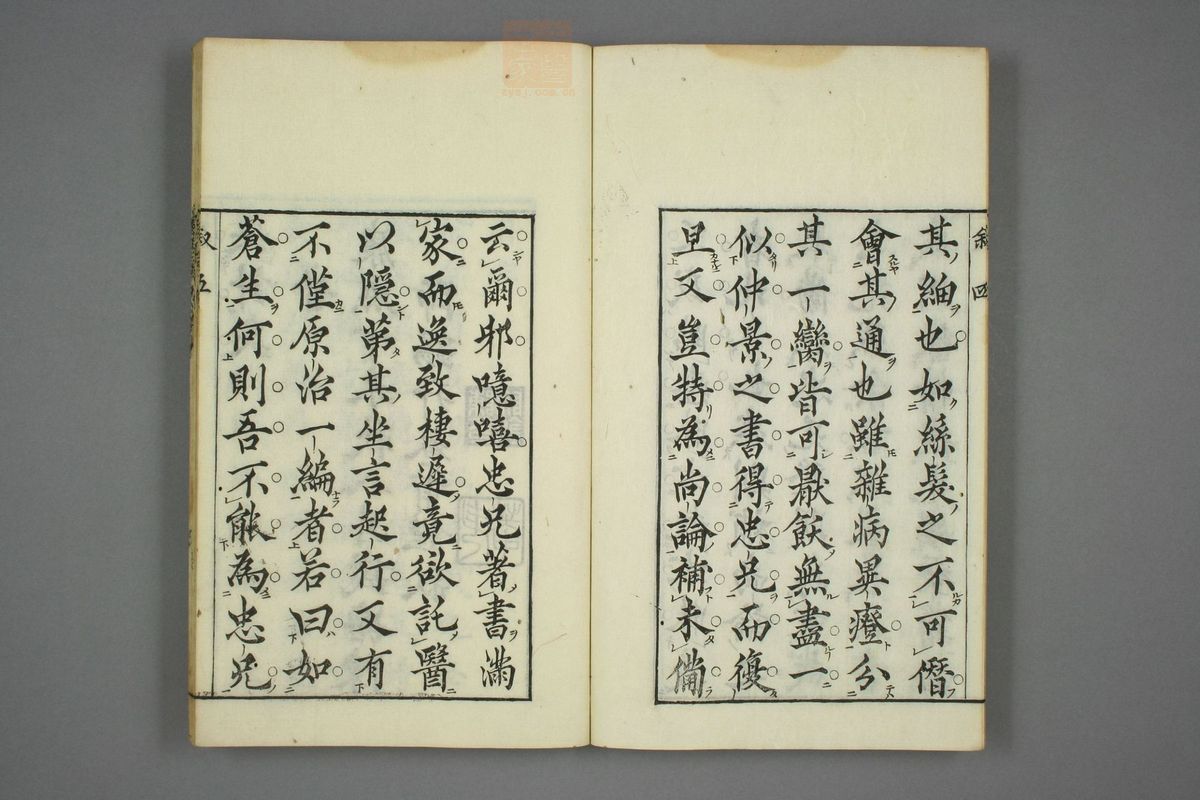 敘 四
其細也如絲髮之不可僭
會其通也雖雜病異證分
其一臠皆可厭飫無盡一
似仲景之書得忠兄而復
旦又豈特為尚論補未備
云爾邪噫嘻忠兄著書滿
家而逸致棲遲竟欲託醫
以隱第其坐言起行又有
不僅原治一編者若曰如
蒼生何則吾不能為忠兄
敘 五
zysj.com.cn